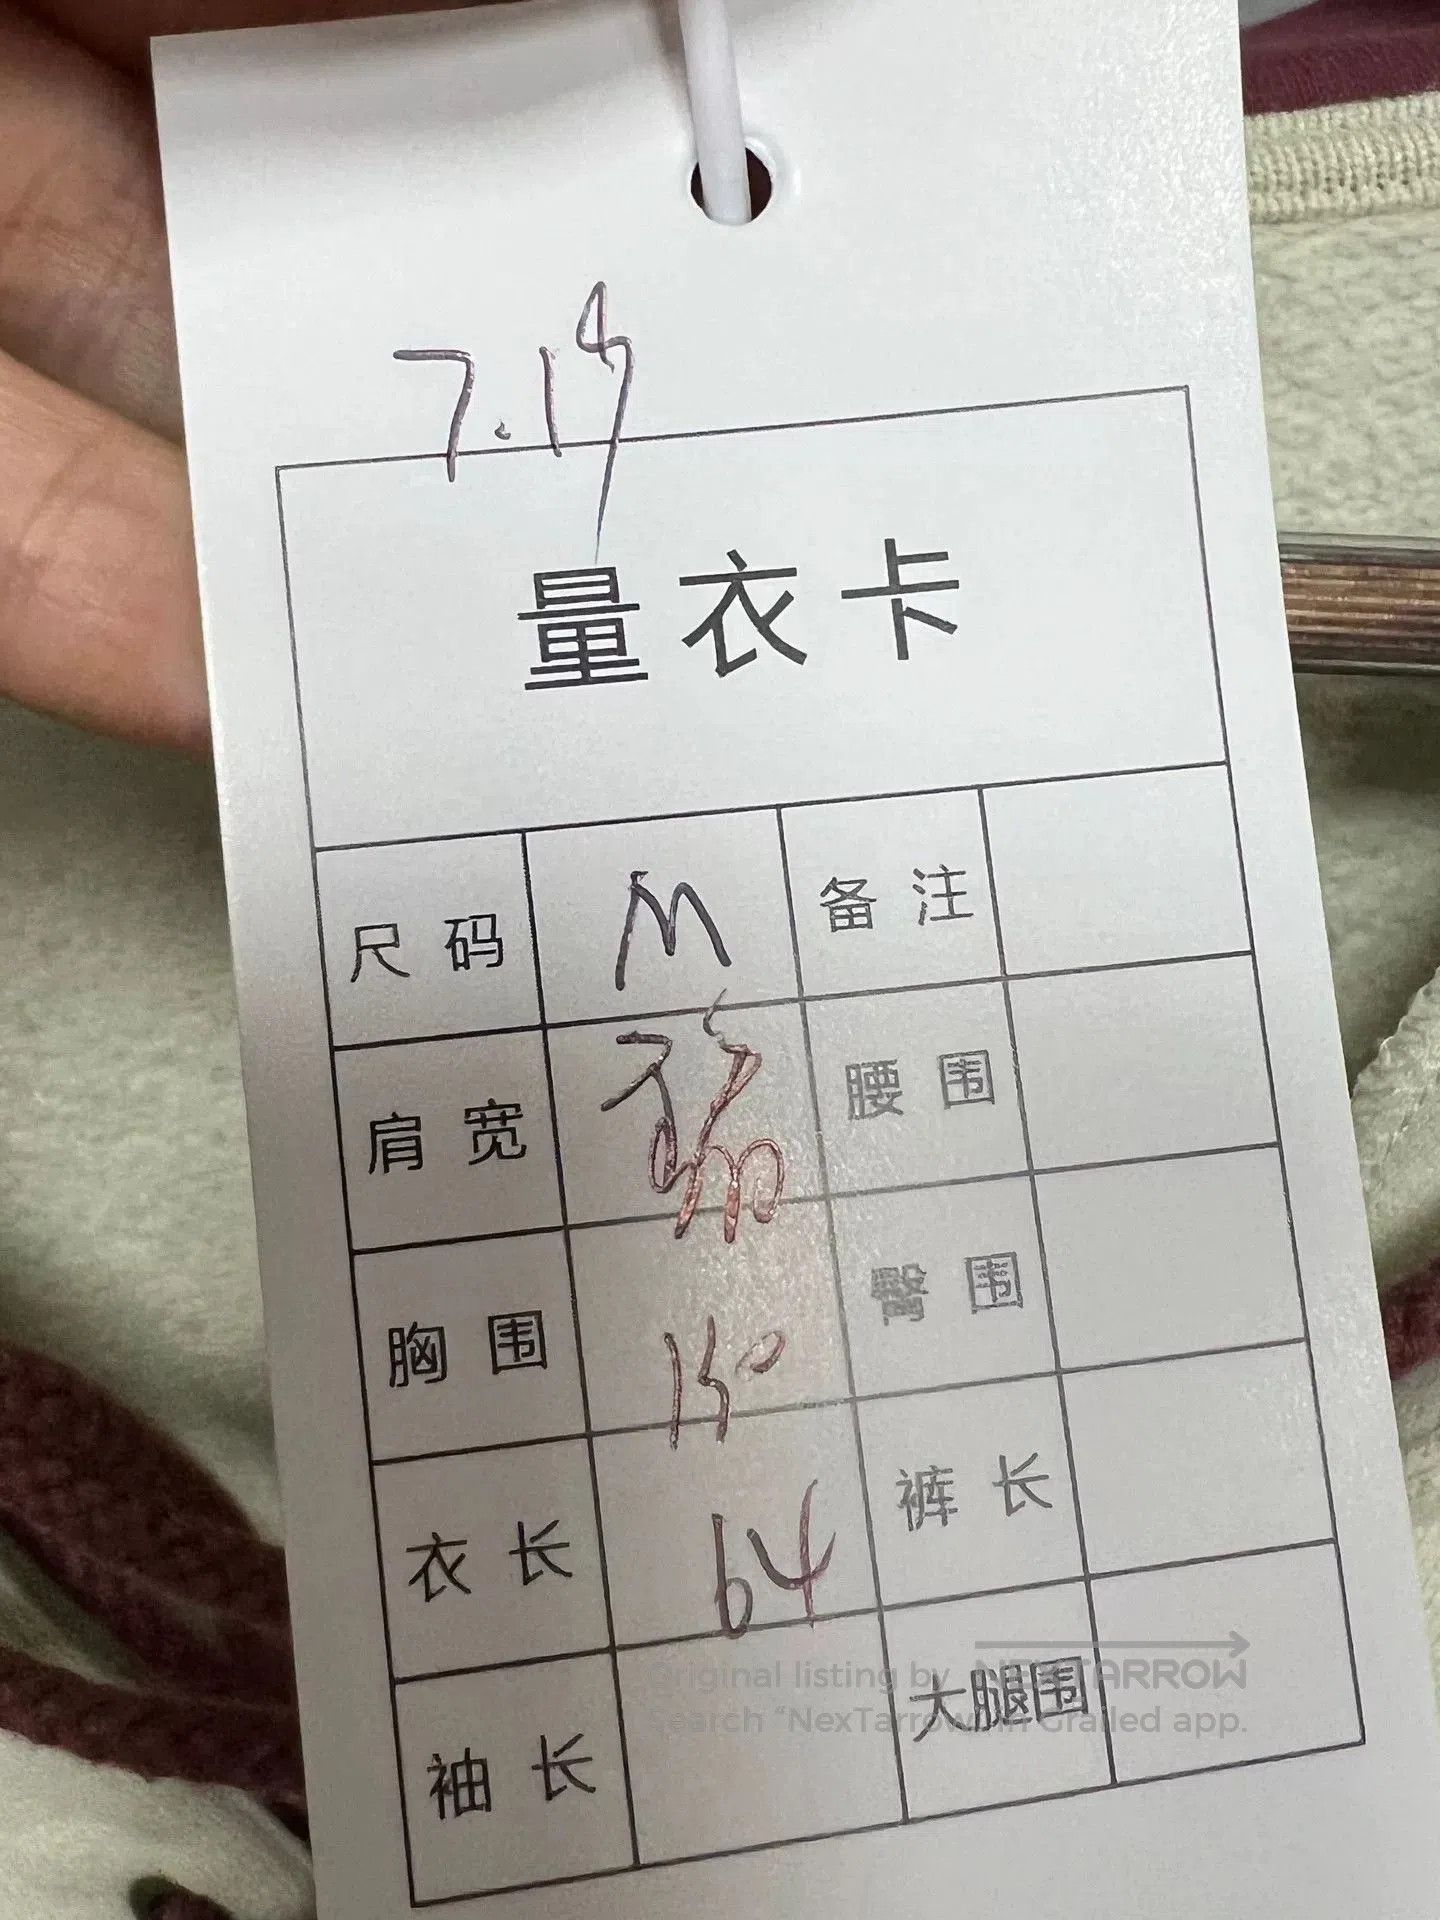 量衣卡
尺码 M 备注
肩宽 腰围
胸围 150 臀围
衣长 64 裤长
袖长 大腿围
Original listing by NEXTARROW
Search “NexTarrow” in Grailed app.